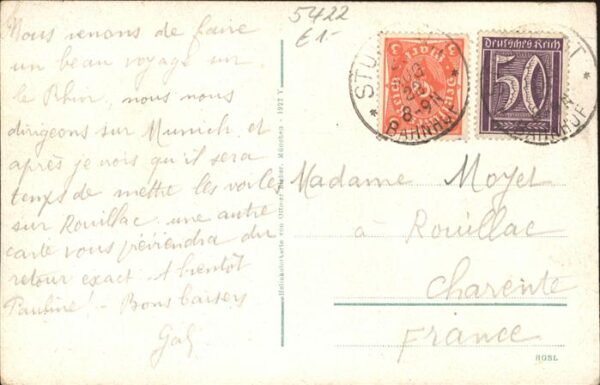 5422
£1-
Nous venons de faire
un beau voyage sur
le Rhin, nous nous
dirigeons sur Munich, et
après je vois qu'il sera
temps de mettre les voiles
sur Rouillac. une autre
carte vous préviendra du
retour exact. A bientôt
Pauline! - Bons baisers
Gaby
München - 1922
STUTTGART
AUG
22
8-9N
BAHNHOF
Deutsches Reich
50
BAHNHOF
Madame Moyet
à Rouillac
Charente
France
ROSL